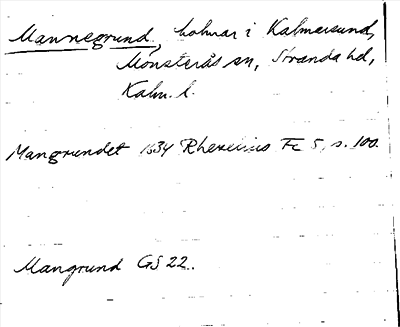 Mannegrund, holmar i Kalmarsund,
Mönsterås sn, Stranda hd,
Kalm. l.
Mangrundet 1634 Rhezelius Fc 5, s. 100.
Mangrund GS 22.